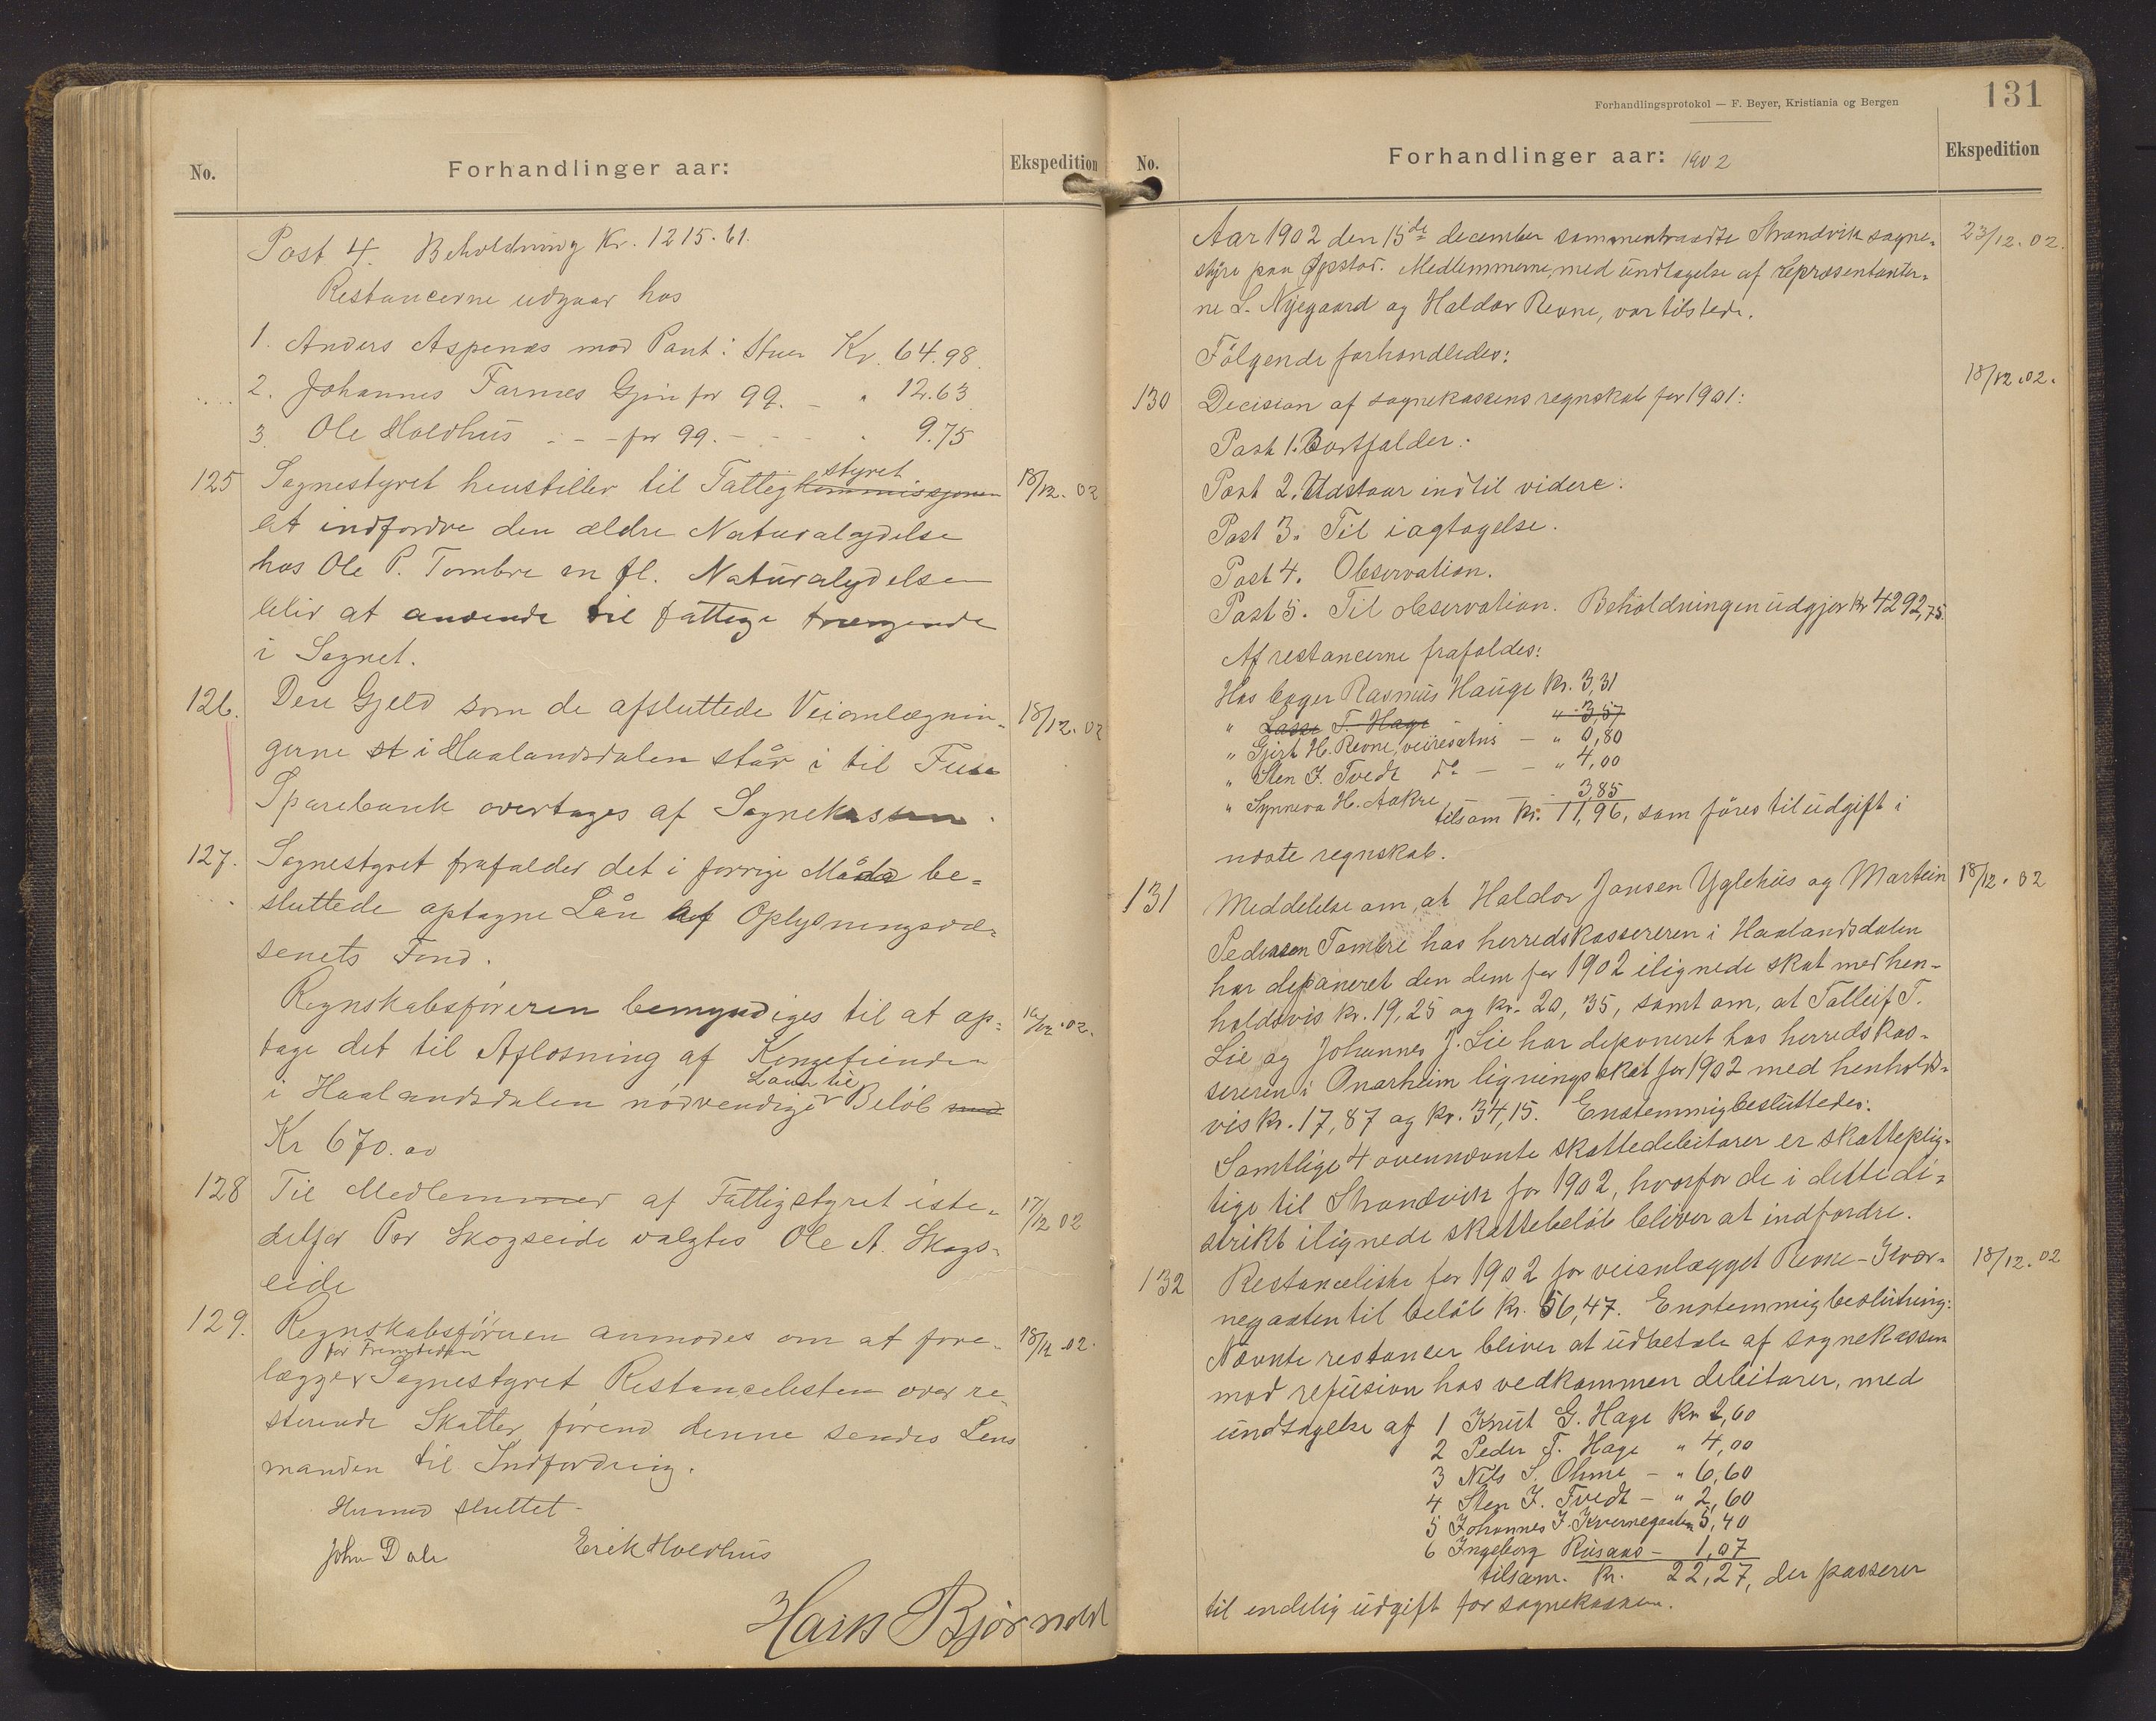 No.
Forhandlinger aar:
Ekspedition
Post 4. Beholdning Kr. 1215.61.
Restancerne udgaar hos
1. Anders Aspenæs mod Pant i Stuen Kr. 64.98
2. Johannes Tarmes Gjen for 99. — " 12.63
3. Ole Holdhus - - - for 99. - - - " 9.75
125 Sognestyret henstiller til Fattigkommissjonen styret 18/12.02
at indfordre den ældre Naturalydelse
hos Ole P. Tombre m fl. Naturalydelsen
bliv at anvende til fattige trængende
i Sognet.
126. Den Gjeld som de afsluttede Veianlægnin- 18/12.02
gerne st i Haalandsdalen står i til Fusa
Sparebank overtages af Sognekassen.
127. Sognestyret frafalder det i forrige Måde be-
sluttede optagne Lån af Oplysningsvæ-
senets Fond.
Regnskabsføreren bemyndiges til at op- 16/12.02.
tage det til Aflosning af
i Haalandsdalen nödvendige Laan til Beløb
Kr 670.00
128 Til Medlemmer af Fattigstyret iste- 17/12 02
detfor Per Skogseide valgtes Ole A. Skogs-
eide
129. Regnskabsføreren anmodes om at fore- 18/12.02.
for Fremtiden
lægger Sognestyret Restancelisten over re
sterende Skatter, förend denne sendes Lens
manden til Indfordring.
Hermed sluttet -
John Dale Erik Holdhus
Hans Bjørndal
Forhandlingsprotokol — F. Beyer, Kristiania og Bergen
131
No.
Forhandlinger aar: 1902
Ekspedition
Aar 1902 den 15de december sammentraadte Strandvik sogne- 23/12.02.
styre paa Øpstad. Medlemmerne, med undtagelse af repræsentanter-
ne L. Nygaard og Haldor Revne, var tilstede.
Følgende forhandledes:
130 Decision af sognekassens regnskab for 1901: 18/12.02.
Post 1. Bortfalder.
Post 2. Udstaar indtil videre.
Post 3. Til iagtagelse.
Post 4. Observation.
Post 5. Til observation. Beholdningen udgjør kr 4292,75.
Af restancerne frafaldes:
Hos bager Rasmus Hauge kr. 3,31
" Lasse T. Hage " 3,57
" Gjert H. Revne, veirestants — " 0,80
" Sten J. Tvedt do — — " 4,00
" Synneva H. Aakre — - 3,85
tilsam kr. 11,96, som føres til udgift i
næste regnskab.
131 Meddelelse om, at Haldor Jansen Yglehus og Martein 18/12.02
Pedersen Tombre hos herredskassereren i Haalandsdalen
har deponeret den dem for 1902 ilignede skat med hen-
holdsvis kr. 19,25 og kr. 20,35, samt om, at Talleif T.
Lie og Johannes J. Lie har deponeret hos herredskas-
sereren i Onarheim ligningsskat for 1902 med henholds-
vis kr. 17,87 og kr. 34,15. Enstemmig besluttedes:
Samtlige 4 ovennævnte skattedebitorer er skatteplig-
tige til Strandvik for 1902, hvorfor de i dette di-
strikt ilignede skattebeløb bliver at indfordre.
132 Restanceliste for 1902 for veianlægget Revne-Kvær- 18/12.02
negaaten til beløb kr. 56,47. Enstemmig beslutning:
Nævnte restancer bliver at udbetale af sognekassen
mod refusion hos vedkommen debitorer, med
undtagelse af 1 Knut G. Hage kr 2,60
2 Peder T. Hage " 4,00
3 Nils S. Ohme — " 6,60
4 Sten J. Tvedt — " 2,60
5 Johannes J. Kvernegaaten 5,40
6 Ingeborg Rusaas — 1,07
tilsam. kr. 22,27, der passerer
til endelig udgift for sognekassen.